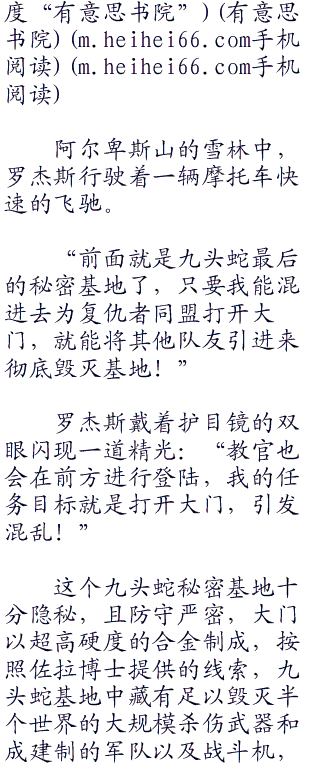 度“有意思书院”)(有意思
书院)(m.heihei66.com手机
阅读)(m.heihei66.com手机
阅读)
阿尔卑斯山的雪林中，
罗杰斯行驶着一辆摩托车快
速的飞驰。
“前面就是九头蛇最后
的秘密基地了，只要我能混
进去为复仇者同盟打开大
门，就能将其他队友引进来
彻底毁灭基地！”
罗杰斯戴着护目镜的双
眼闪现一道精光：“教官也
会在前方进行登陆，我的任
务目标就是打开大门，引发
混乱！”
这个九头蛇秘密基地十
分隐秘，且防守严密，大门
以超高硬度的合金制成，按
照佐拉博士提供的线索，九
头蛇基地中藏有足以毁灭半
个世界的大规模杀伤武器和
成建制的军队以及战斗机，